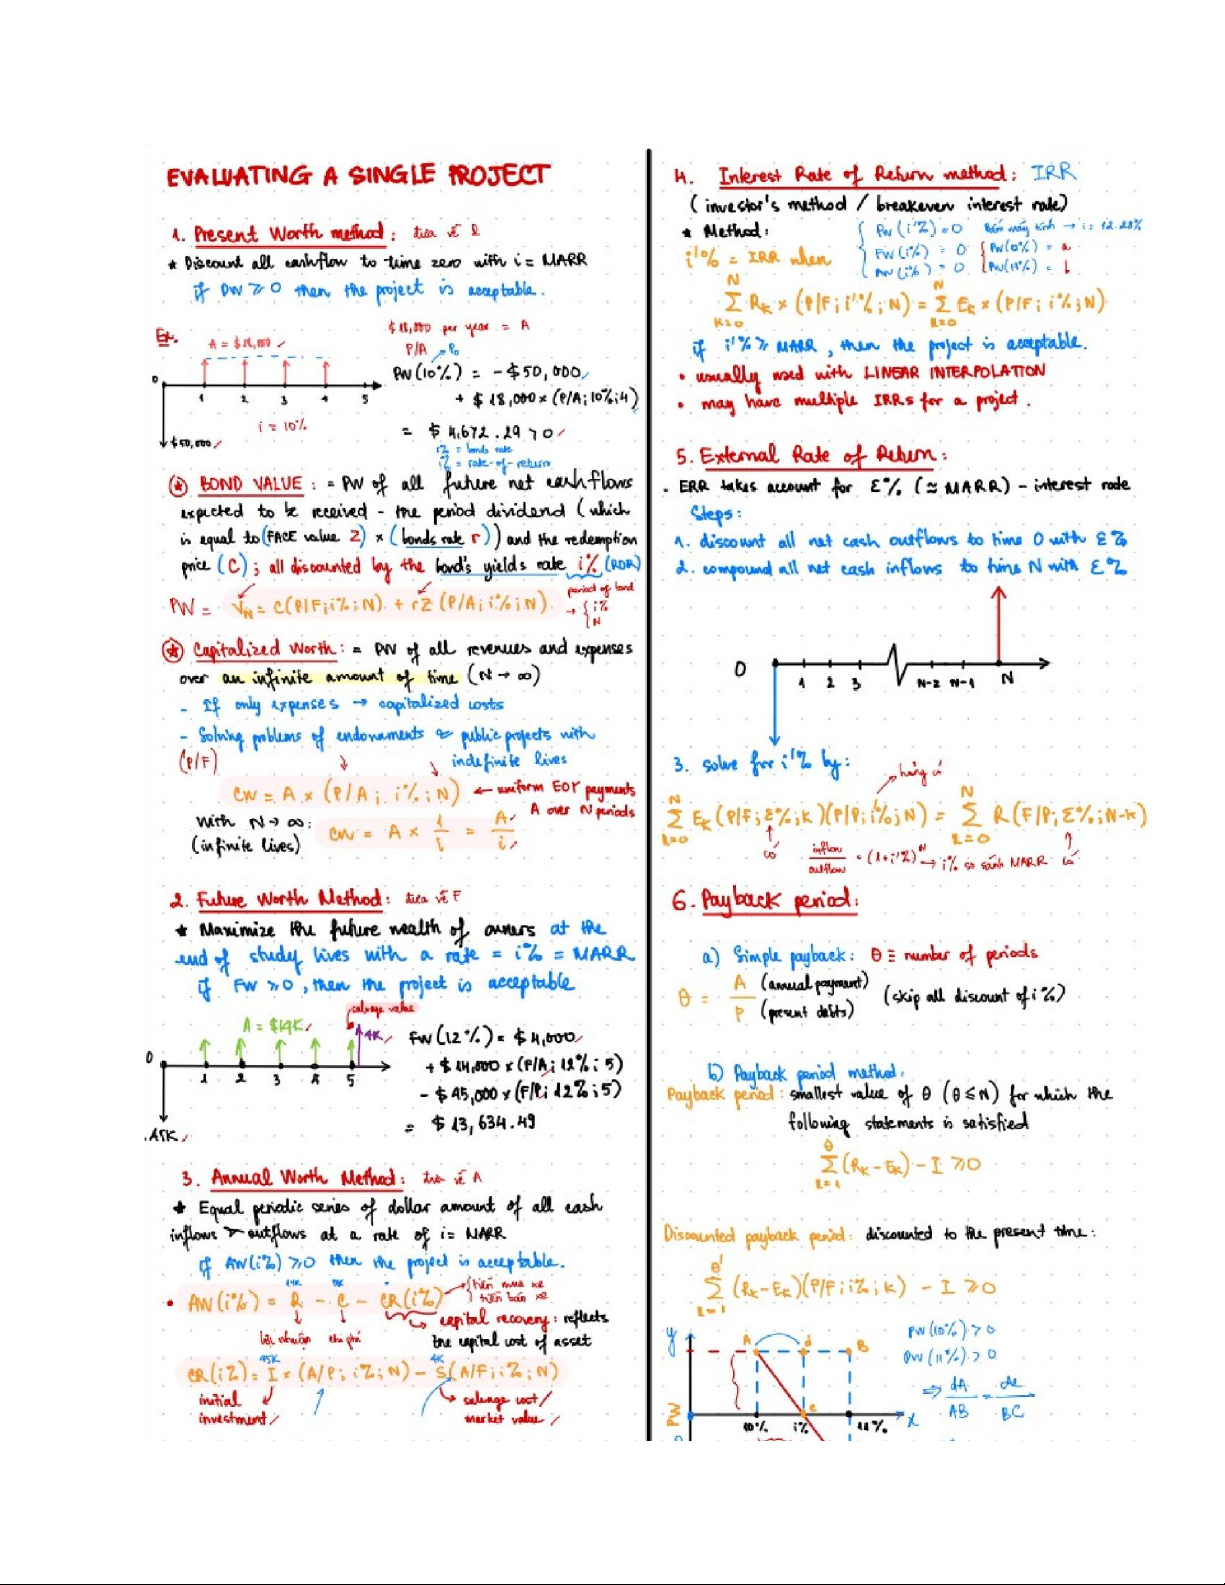 EVALUATING A SINGLE PROJECT
1. Present Worth method: đưa về P
* Discount all cashflow to time zero with i = MARR
if PW ≥ 0 then the project is acceptable.
Ex.
A = $18,000
0 1 2 3 4 5
i = 10%
$50,000
$18,000 per year = A
P/A P₀
PW(10%) = -$50,000
+ $18,000 × (P/A; 10%; 4)
= $4,672.29 > 0
r% = bonds rate
i% = rate-of-return
* BOND VALUE: = PW of all future net cashflows
expected to be received - the period dividend (which
is equal to (FACE value Z) × (bonds rate r)) and the redemption
price (C); all discounted by the bond's yields rate i% (ROR)
PW = V_N = C(P/F; i%; N) + rZ (P/A; i%; N)
period of bond
→ { i%
N
* Capitalized Worth: = PW of all revenues and expenses
over an infinite amount of time (N → ∞)
- If only expenses → capitalized costs
- Solving problems of endowments & public projects with
indefinite lives
(P/F)
CW = A × (P/A; i%; N) ← uniform EOY payments
A over N periods
With N → ∞:
(infinite lives)
CW = A × 1/i = A/i
2. Future Worth Method: đưa về F
* Maximize the future wealth of owners at the
end of study lives with a rate = i% = MARR
if FW ≥ 0, then the project is acceptable
salvage value
A = $14K
4K
0 1 2 3 4 5
45K
FW(12%) = $4,000
+ $14,000 × (P/A; 12%; 5)
- $45,000 × (F/P; 12%; 5)
= $13,634.49
3. Annual Worth Method: đưa về A
* Equal periodic series of dollar amount of all cash
inflows outflows at a rate of i = MARR
if AW(i%) ≥ 0 then the project is acceptable.
• AW(i%) = R - E - CR(i%)
tiền mua xe
tiền bán xe
lợi nhuận chi phí
capital recovery: reflects
the capital cost of asset
45K 4K
CR(i%) = I × (A/P; i%; N) - S(A/F; i%; N)
initial
investment
salvage cost/
market value
4. Interest Rate of Return method: IRR
(investor's method / breakeven interest rate)
* Method:
i'% = IRR when
{ PW(i'%) = 0 Bấm máy tính → i = 12.28%
FW(i%) = 0 { PW(10%) = a
AW(i%) = 0 PW(15%) = b
N Σ k=0 R_k × (P/F; i'%; N) = N Σ k=0 E_k × (P/F; i%; N)
if i'% ≥ MARR, then the project is acceptable.
• usually used with LINEAR INTERPOLATION
• may have multiple IRRs for a project.
5. External Rate of Return:
. ERR takes account for ε% (≃ MARR) - interest rate
Steps:
1. discount all net cash outflows to time 0 with ε%
2. compound all net cash inflows to time N with ε%
0 1 2 3 N-2 N-1 N
3. solve for i'% by:
N Σ k=0 E_k (P/F; ε%; k)(F/P; i'%; N) = N Σ k=0 R (F/P; ε%; N-k)
có inflow/outflow = (1+i'%)^N → i% so sánh MARR có
6. Payback period:
a) Simple payback: θ ≡ number of periods
θ = A (annual payment) / P (present debts) (skip all discount of i%)
b) Payback period method:
Payback period: smallest value of θ (θ ≤ N) for which the
following statements is satisfied
θ Σ k=1 (R_k - E_k) - I ≥ 0
Discounted payback period: discounted to the present time:
θ' Σ k=1 (R_k - E_k)(P/F; i%; k) - I ≥ 0
y
A d B
PW
10% i% 11% x
e
PW(10%) > 0
PW(11%) > 0
⇒ dA/AB = de/BC